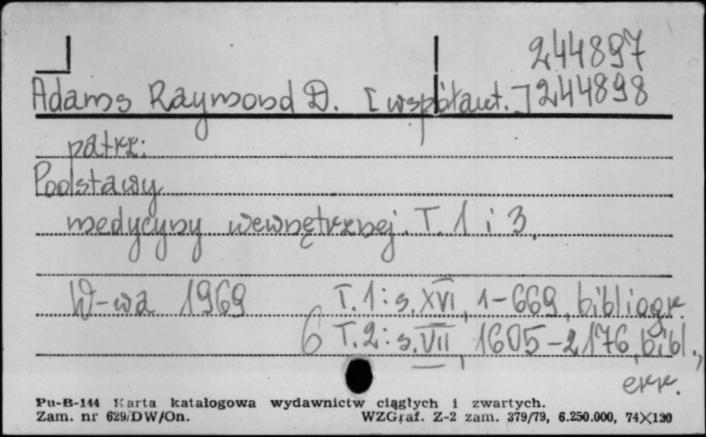 244897
Adams Raymond D. [współaut.] 244898
patrz:
Podstawy
medycyny wewnętrznej. T. 1 i 3.
W-wa 1969 T. 1: s. XVI, 1-669, bibliogr.
6 T. 2: s. VII, 1605-2176, bibl.,
err.
Pu-B-144 Karta katalogowa wydawnictw ciągłych i zwartych.
Zam. nr 629/DW/On. WZGraf. Z-2 zam. 379/79, 6.250.000, 74×120